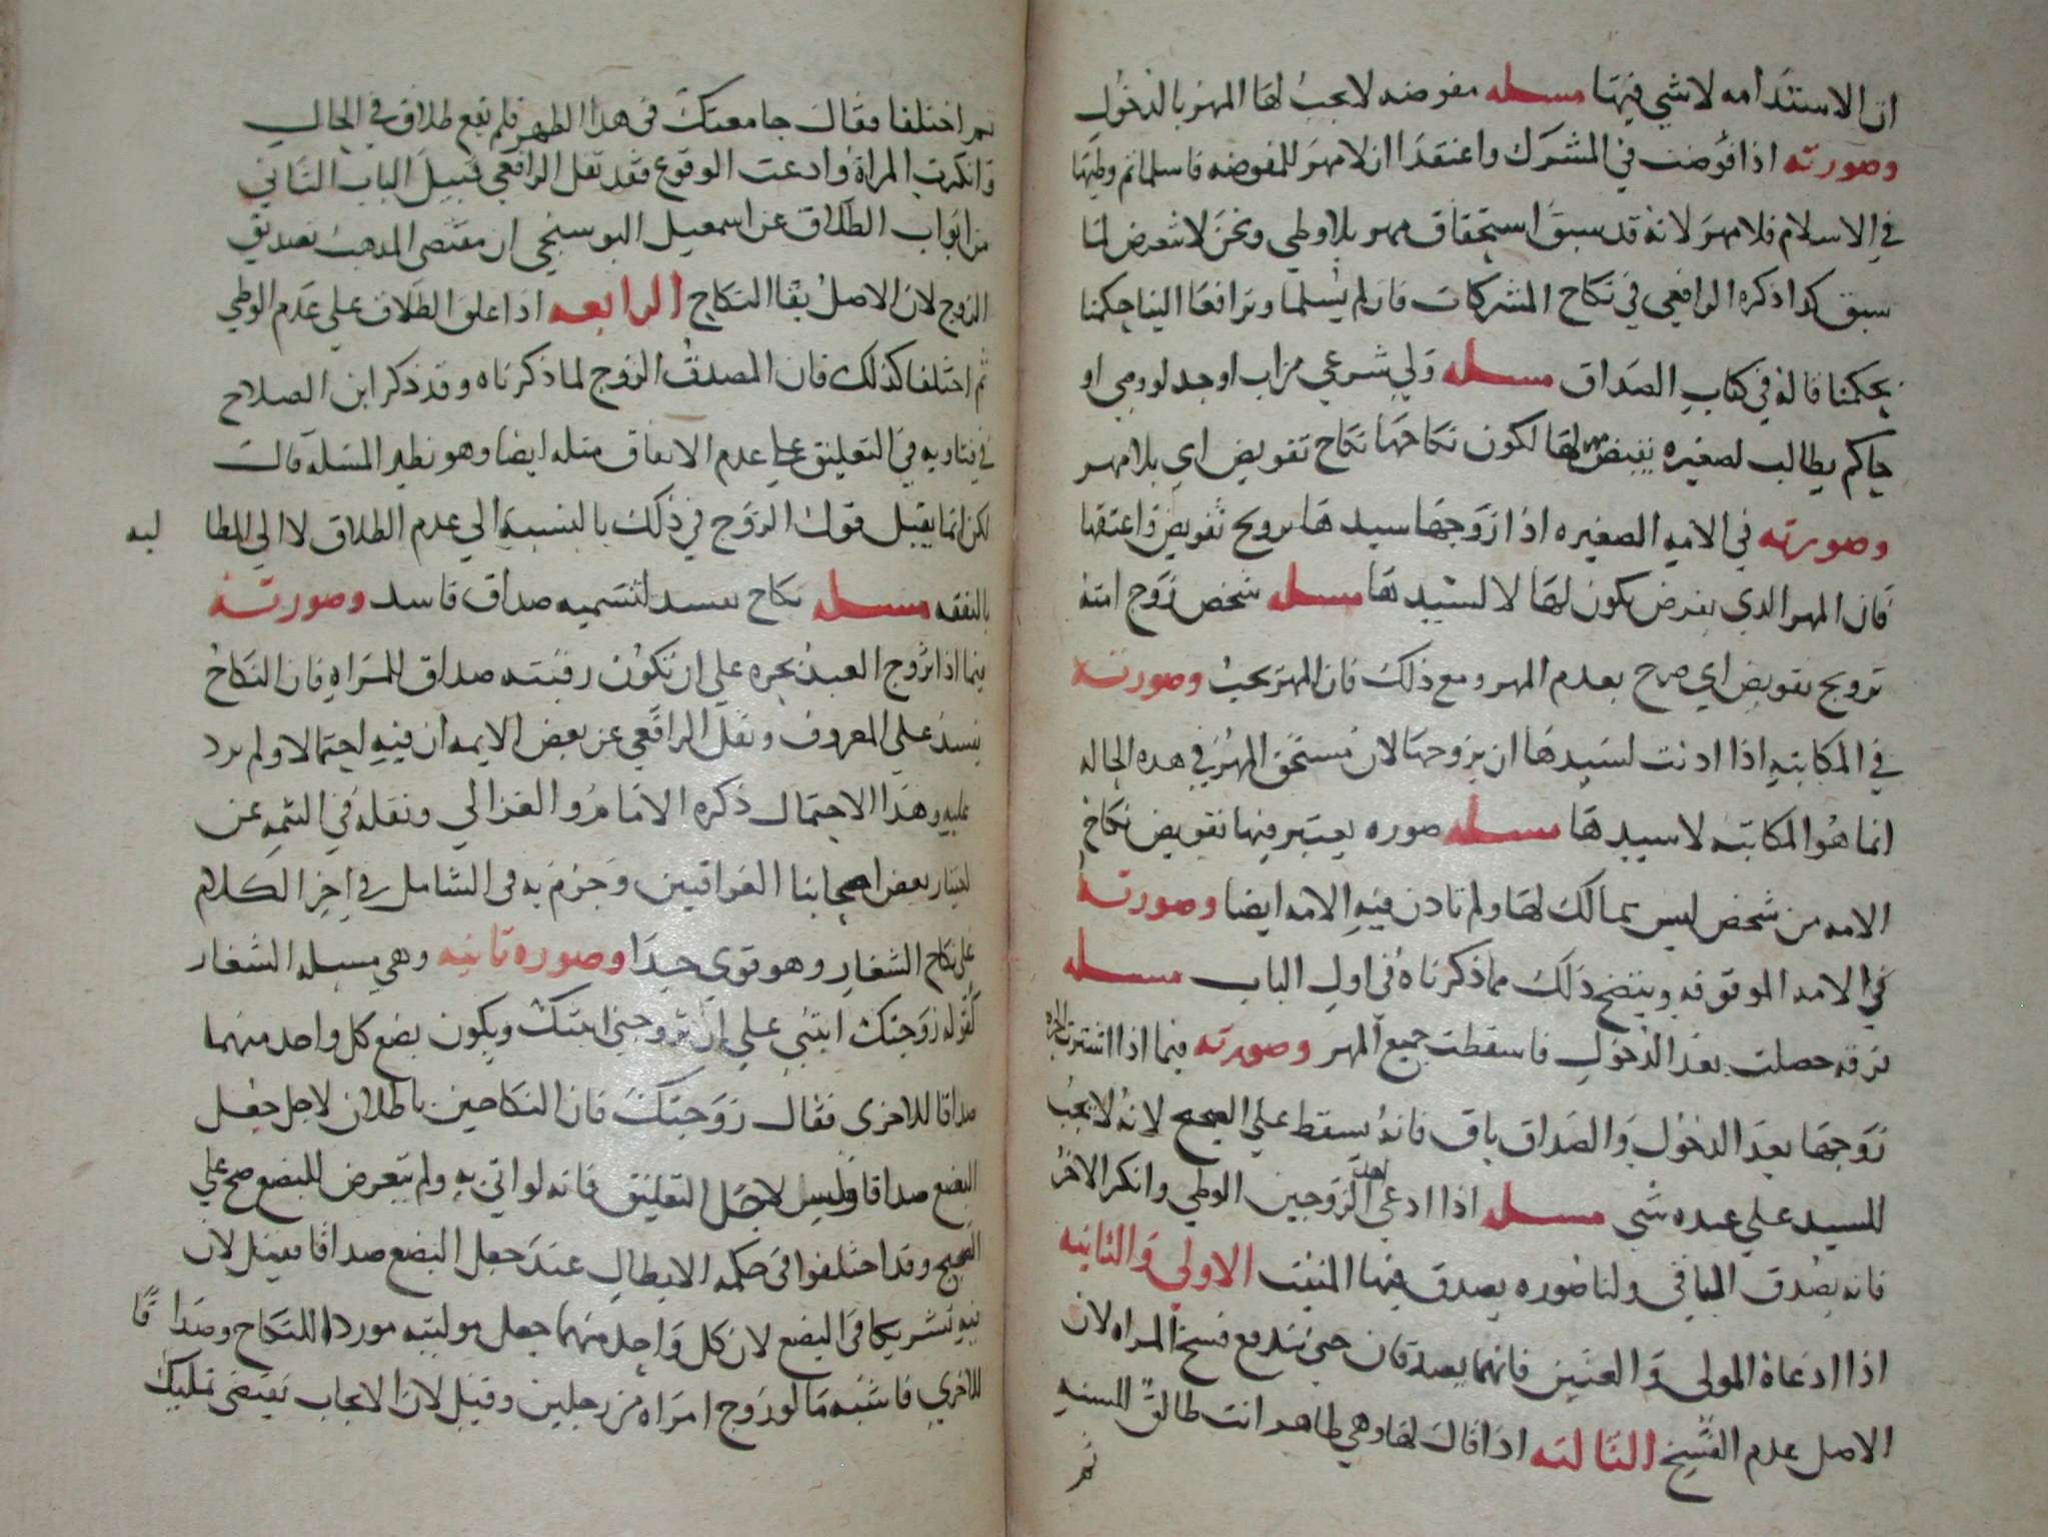 ان الاستدامه لا شي فيها مسله مفوضه لا يجب لها المهر بالدخول
وصورته اذا فوضت في المشرك واعتقدا ان لا مهر للمفوضه فاسلما ثم وطيها
في الاسلام فلا مهر لانه قد سبق استحقاق مهر بلا وطي ونحن لا نتعرض لما
سبق كذا ذكره الرافعي في نكاح المشركات فان لم يسلما وترافعا الينا حكمنا
بحكمنا قاله في كتاب الصداق مسله ولي شرعي من اب او جد او وصي او
حاكم يطالب لصغيره بفرض مهر لها لكون نكاحها نكاح تفويض اي بلا مهر
وصورته في الامه الصغيره اذا زوجها سيدها تزويج تفويض واعتقها
فان المهر الذي يفرض يكون لها لا لسيدها مسله شخص زوج امته
تزويج تفويض اي صرح بعدم المهر ومع ذلك فان المهر يجب وصورته
في المكاتبه اذا اذنت لسيدها ان يزوجها لان مستحق المهر في هذه الحاله
انما هو المكاتبه لا سيدها مسله صوره يعتبر فيها تفويض نكاح
الامه من شخص ليس بمالك لها ولم تاذن فيه الامه ايضا وصورته
في الامه الموقوفه ويتضح ذلك مما ذكرناه في اول الباب مسله
فرقه حصلت بعد الدخول فاسقطت جميع المهر وصورته فيما اذا اشترت الحره
زوجها بعد الدخول والصداق باق فانه يسقط علي الصحيح لانه لا يجب
للسيد علي عبده شي مسله اذا ادعي احد الزوجين الوطي وانكر الاخر
فانه يصدق النافي ولنا صوره يصدق فيها المثبت الاولي والثانيه
اذا ادعاه المولي والعنين فانهما يصدقان حتي يندفع فسخ المراه لان
الاصل عدم الفسخ الثالثه اذا قال لها وهي طاهر انت طالق للسنه
ثم
ثم اختلفا فقال جامعتك في هذا الطهر فلم يقع طلاق في الحال
وانكرت المراة وادعت الوقوع فقد نقل الرافعي قبيل الباب الثاني
من ابواب الطلاق عن اسمعيل البوسنجي ان مقتضي المذهب تصديق
الزوج لان الاصل بقا النكاح الرابعه اذا علق الطلاق علي عدم الوطي
ثم اختلفا كذلك فان المصدق الزوج لما ذكرناه وقد ذكر ابن الصلاح
في فتاويه في التعليق علي عدم الانفاق مثله ايضا وهو نظير المسله قالت
لكن انما يقبل قول الزوج في ذلك بالنسبة الي عدم الطلاق لا الي المطا لبه
بالنفقه مسله نكاح يفسد لتسميه صداق فاسد وصورته
فيما اذا تزوج العبد بحره علي ان تكون رقبته صداق للمراه فان النكاح
يفسد علي المعروف ونقل الرافعي عن بعض الايمه ان فيه احتمالا ولم يرد
عليه وهذا الاحتمال ذكره الامام والغزالي ونقله في التتمه عن
اختيار بعض اصحابنا العراقيين وجزم به في الشامل في اخر الكلام
علي نكاح الشغار وهو قوي جدا وصوره ثانيه وهي مسله الشغار
كقوله زوجتك ابنتي علي ان تزوجني ابنتك ويكون بضع كل واحد منهما
صداقا للاخري فقال زوجتك فان النكاحين باطلان لاجل جعل
البضع صداقا وليس لاجل التعليق فانه لو اتي به ولم يتعرض للبضع صح علي
الصحيح وقد اختلفوا في حكمه الابطال عند جعل البضع صداقا فقيل لان
فيه تشريكا في البضع لان كل واحد منهما جعل موليته موردا للنكاح وصداقا
للاخري فاشبه ما لو زوج امراه من رجلين وقيل لان الايجاب يقتضي تمليك